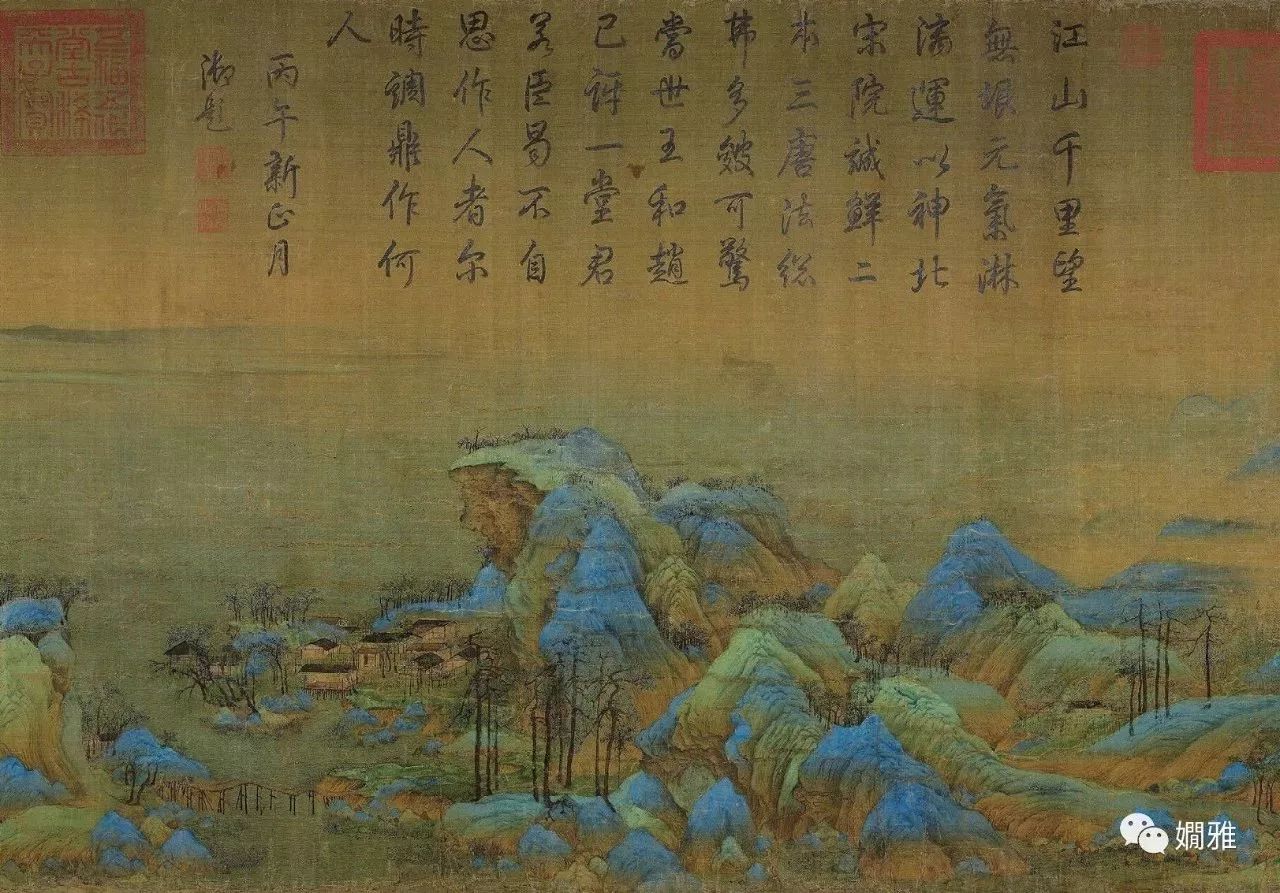 江山千里望
無垠元氣淋
漓運以神北
宋院誠鮮二
本三唐法総
弗多皴可驚
當世王和趙
已訝一堂君
若臣曷不自
思作人者尔
時調鼎作何
人
丙午新正月
御題
嫺雅